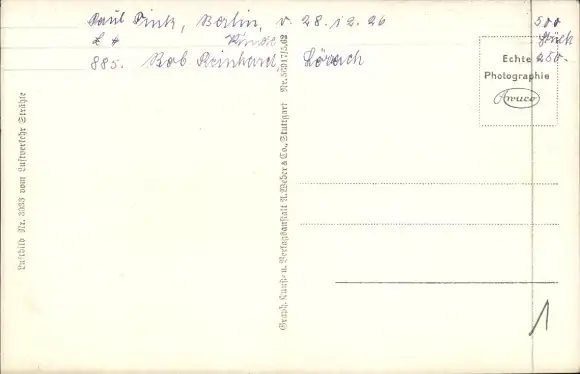 Paul Fink, Berlin, v. 28.12.26
885. Bob Reinhard, Lörach
500
Stück
250.-
Echte
Photographie
Awuco
Luftbild Nr. 3933 vom Luftverkehr Strähle
Graph. Kunst- u. Verlagsanstalt A. Weber & Co., Stuttgart
1